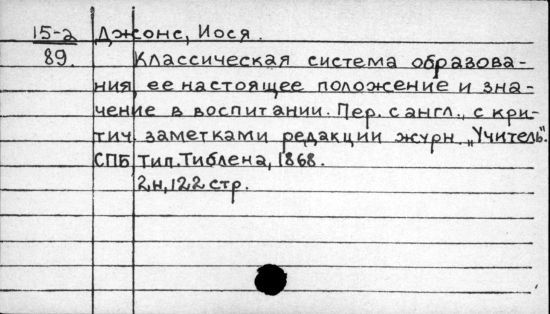 15-2 Джонс, Иося.
89. Классическая система образова-
ния, ее настоящее положение и зна-
чение в воспитании. Пер. с англ., с кри-
тич. заметками редакции журн. „Учитель".
СПБ, Тип. Тиблена, 1868.
2н, 122 стр.